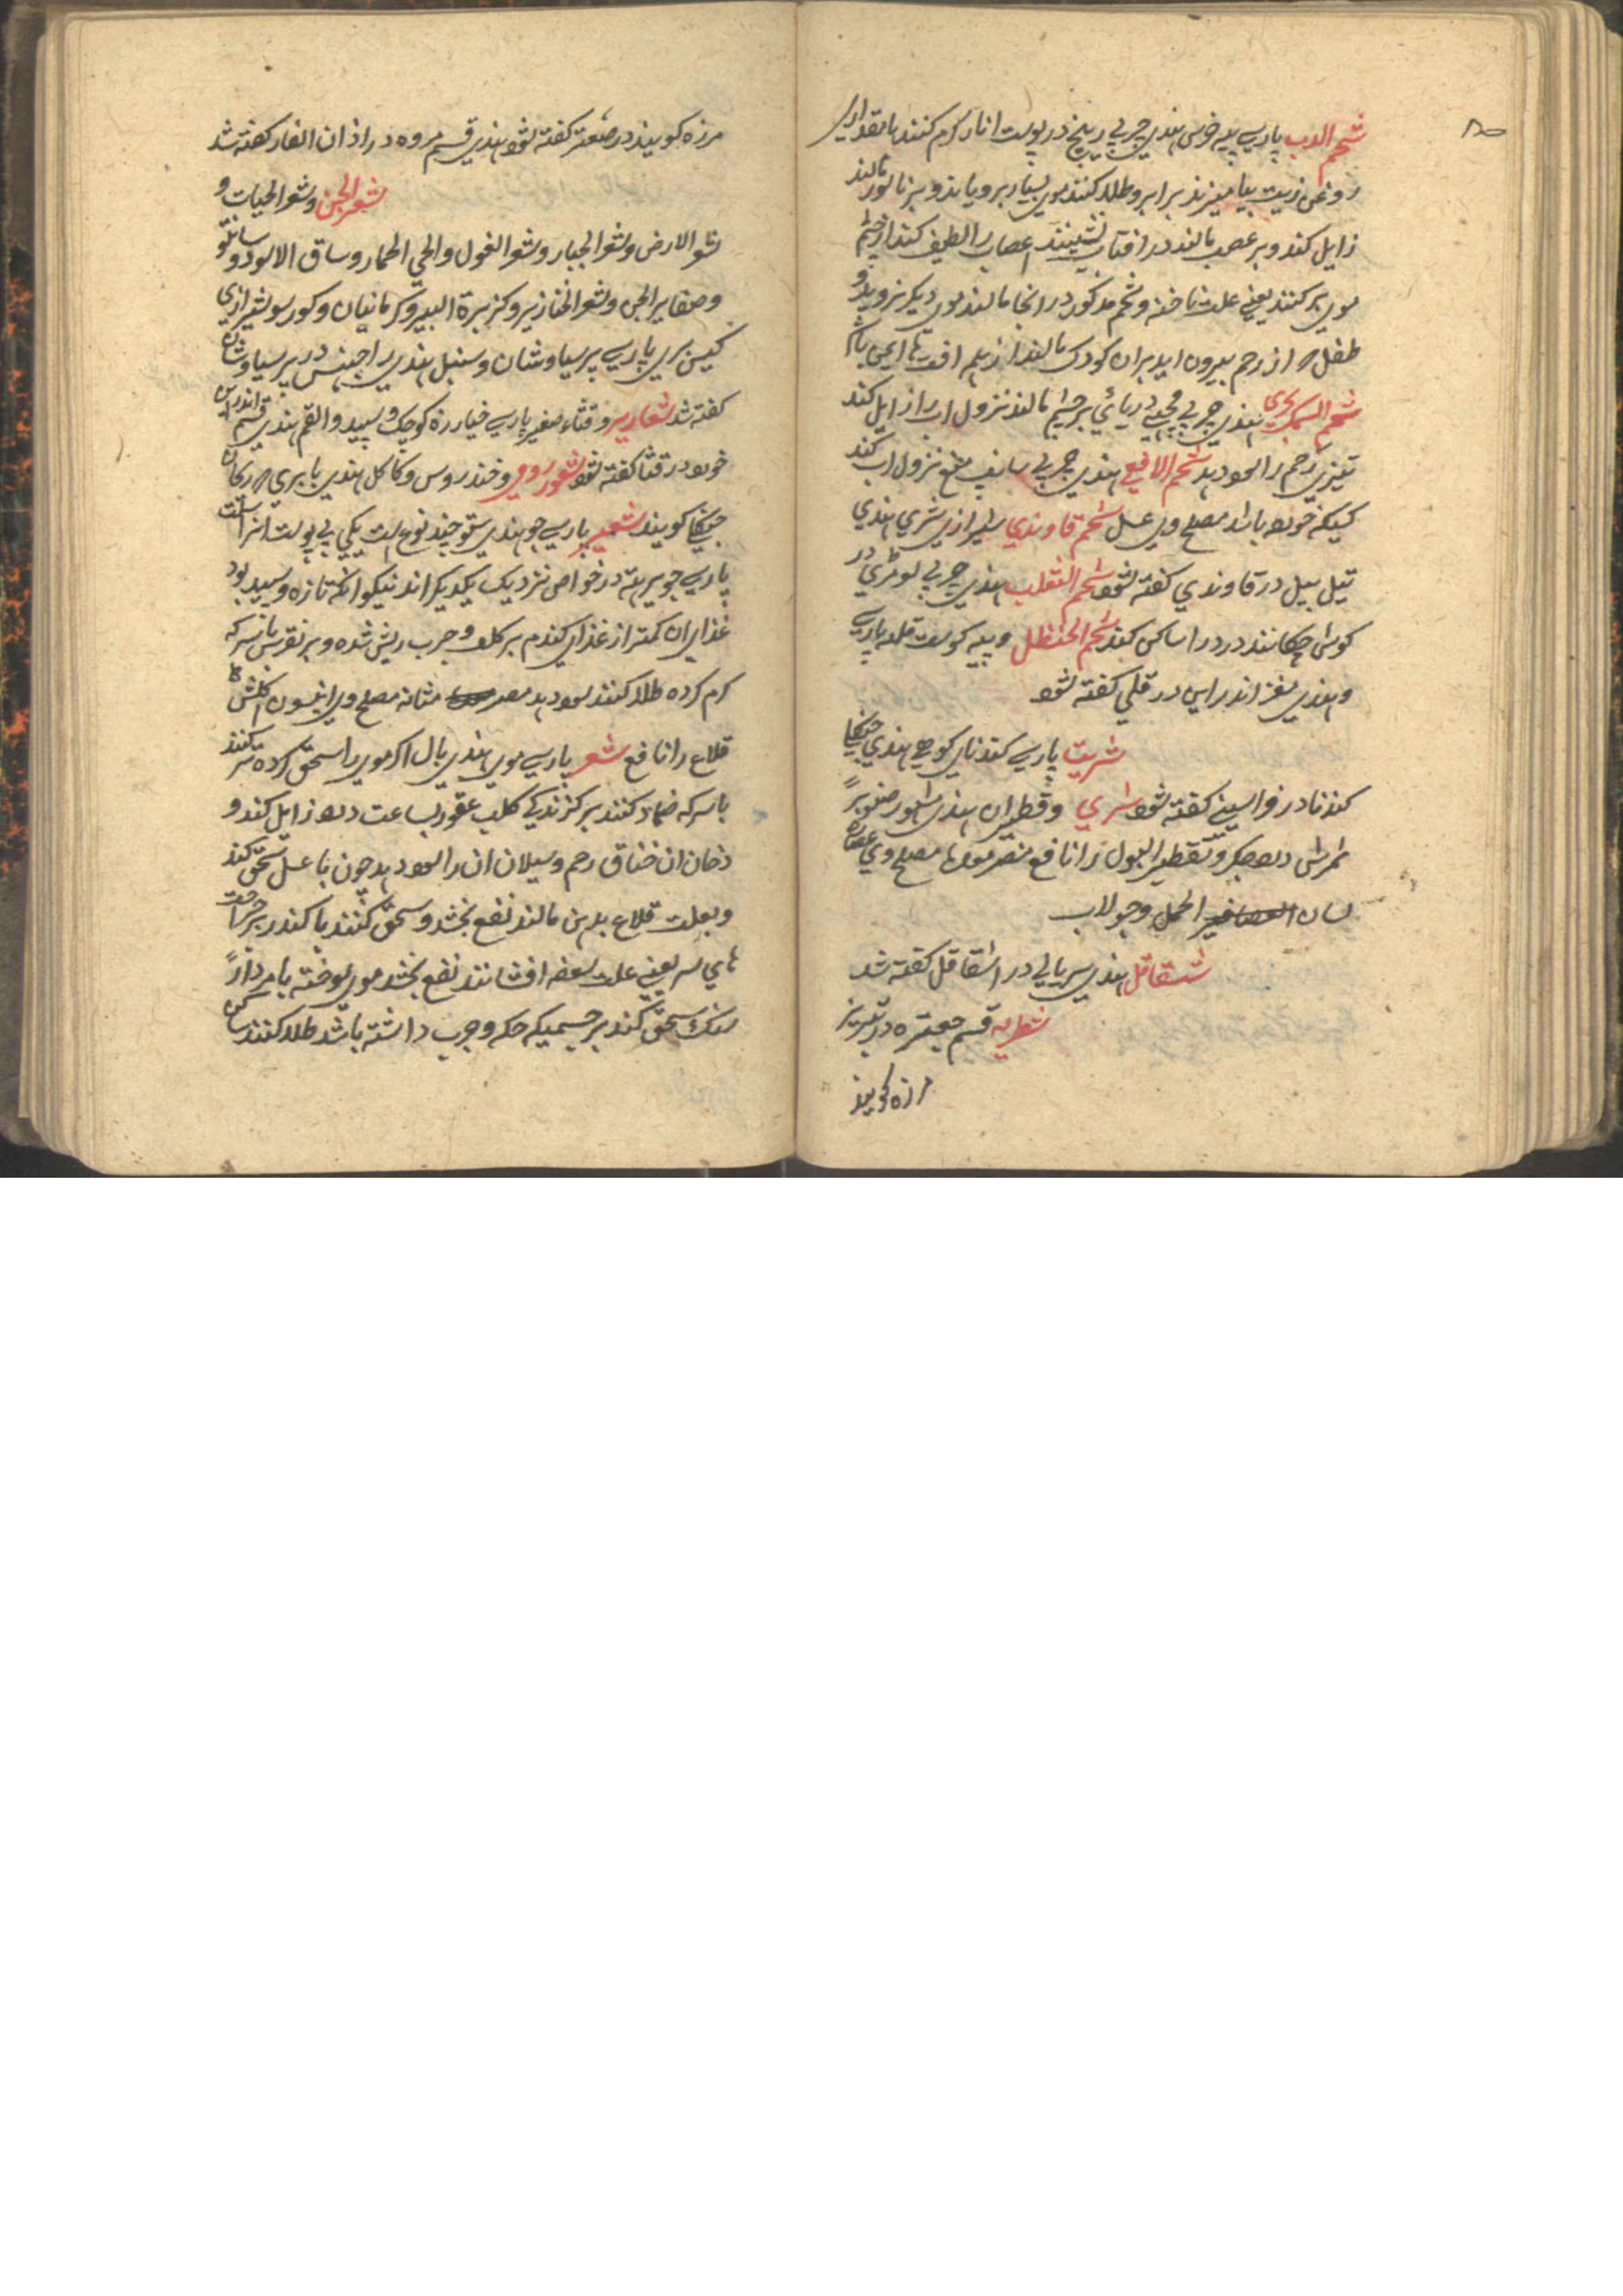 ۸۵
شحم الدب پارسی پیه خرس هندی چربی ریچھ در پوست انار کرم کنند با مقداری
روغن زیت بیامیزند برابرو طلا کنند موی بسیار برویاند و بر ناسور مالند
زایل کند و بر عصب مالند در افتاب نشینند اعصاب را لطیف کند از چشم
موی بر کنند یعنی علت ناخنه و شحم مذکور در انجا مالند موی دیکر نروید و
طفل که از رحم بیرون اید بران کودک مالند از همه افت ها ایمن باشد
شحم السمک بحری هندی چربی مچھی دریائی بر چشم مالند نزول اب زایل کند
تیزی رحم را سود دهد شحم الافعی هندی چربی سانپ منع نزول اب کند
کسیکه خورده باشد مصلح وی عسل شحم قاوندی شیرازی شری هندی
تیل بیل در قاوندی کفته شود شحم الثعلب هندی چربی لومڑی در
کوش چکانند درد را ساکن کند شحم الحنظل و پیه کوست قله پارسی
و هندی مغز اندراین در قلی کفته شود
شریت پارسی کندنای کوهی هندی جنکلی
کندنا در فراسیفی کفته شود شری و قطران هندی مشهور صنوبر
ثمرش درد جکر و تقطیر البول را نافع مضر معدها مصلح وی عصاره
لسان الحمل و جولاب
شقاقل هندی سریالی در اشقاقل کفته شد
شطریه قسم صعتره در تبریز
مرزه کویند
مرزه کویند در صعتر کفته شود هندی قسم مروه در اذان الفار کفته شد
شعر الجن و شعر الحیات و
شعر الارض و شعر الجبار و شعر الغول و الحی الحمار و ساق الاسود و
و ضفایر الجن و شعر الخنازیر و کزبرة البیر و کرمانیان و کورسو شیرازی
کیس پری پارسی پرسیاوشان و سنبل هندی راجهنس در پرسیاوشان
کفته شد شعاریر و قثاء صغیر پارسی خیارزه کوچک و سپید و القم هندی قسم اندراین
خورد در قثا کفته شود شعور رومی و خندروس و کاکل هندی بابری که رکان
جنکلی کویند شعیر پارسی جو هندی ستو چند نوع است یکی بی پوست انرا سلت
پارسی جو برهنه در خواص نزدیک یکدیکر اند نیکو انکه تازه و سپید بود
غذای ان کمتر از غذای کندم بر کلف و جرب ریش شده و بر نقرس با سرکه
کرم کرده طلا کنند سود دهد مضر مثانه مصلح وی انیسون اکلش
قلاع را نافع شعر پارسی موی هندی بال اکر موی را سحق کرده تر کنند
با سرکه ضماد کنند بر کزندکی کلب عقور بساعت درد زایل کند و
دخان ان خناق رحم و سیلان ان را سود دهد چون با عسل سحق کند
و بعلت قلاع بدهن مالند نفع بخشد و سحق کنند با کندر بر جراحت
های سر یعنی علت سعفه افشانند نفع بخشد موی سوخته با مردار
سنک سحق کند بر جسمیکه حکه و جرب داشته باشد طلا کنند ساکن